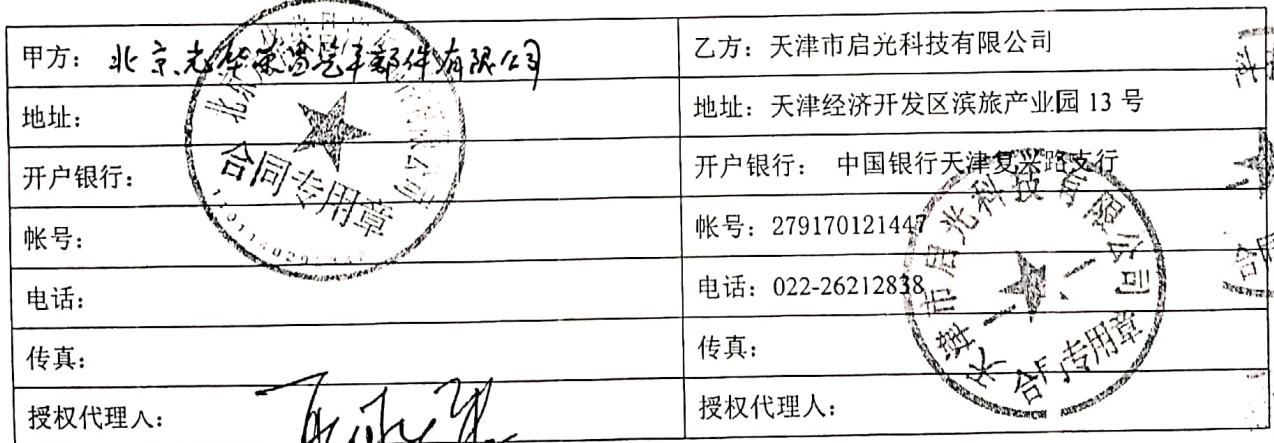 甲方：北京光华荣昌汽车部件有限公司
乙方：天津市启光科技有限公司
地址：
地址：天津经济开发区滨旅产业园 13 号
开户银行：
开户银行： 中国银行天津复兴路支行
帐号：
帐号：279170121447
电话：
电话：022-26212838
传真：
传真：
授权代理人：
授权代理人：
合同专用章
天津市启光科技有限公司
合同专用章